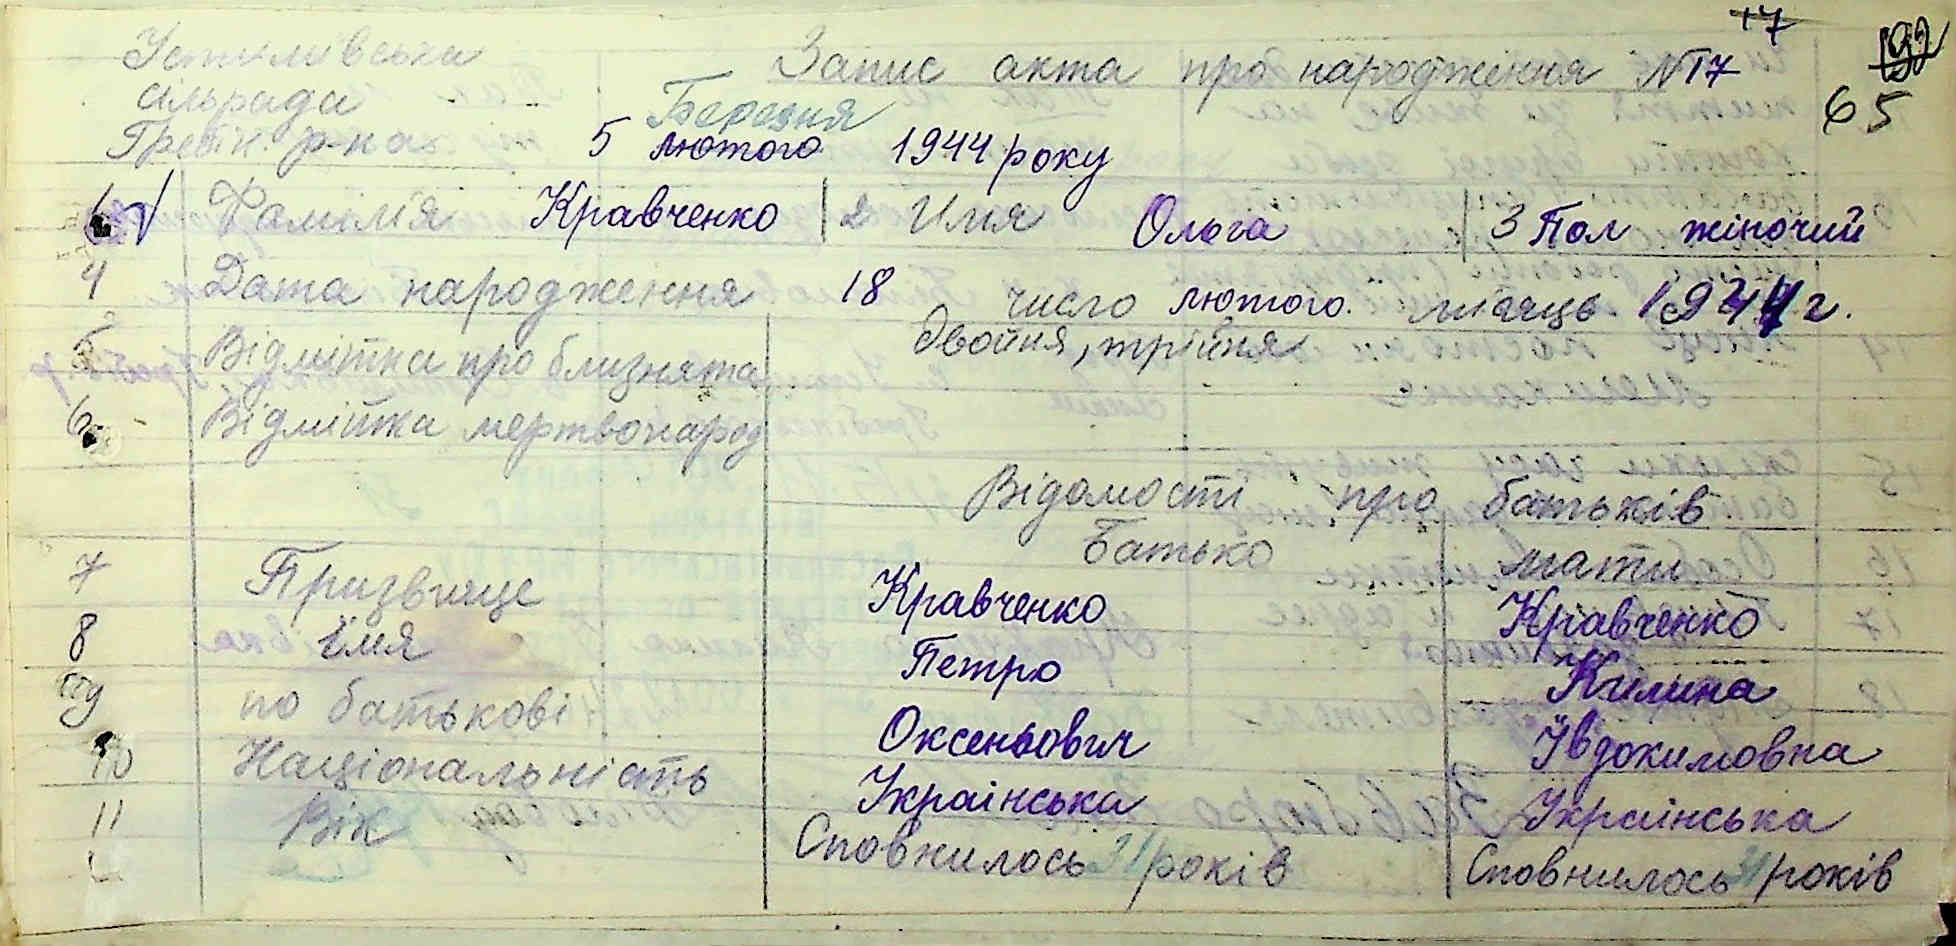 17
192
Устимівська
Запис акта про народження №17
65
сільрада
Березня
Гребін. р-на
5 лютого 1944 року
1 Фамілія Кравченко 2 Имя Ольга 3 Пол жіночий
4 Дата народження 18 число лютого місяць 1944 г.
5 Відмітка про близнята двойня, трійня
6 Відмітка мертвонарод
Відомості про батьків
Батько мати
7 Призвище Кравченко Кравченко
8 Імя Петро Килина
9 по батькові Оксеньович Ївдокимовна
10 Національність Українська Українська
11 Вік Сповнилось 31 років Сповнилось 31 років